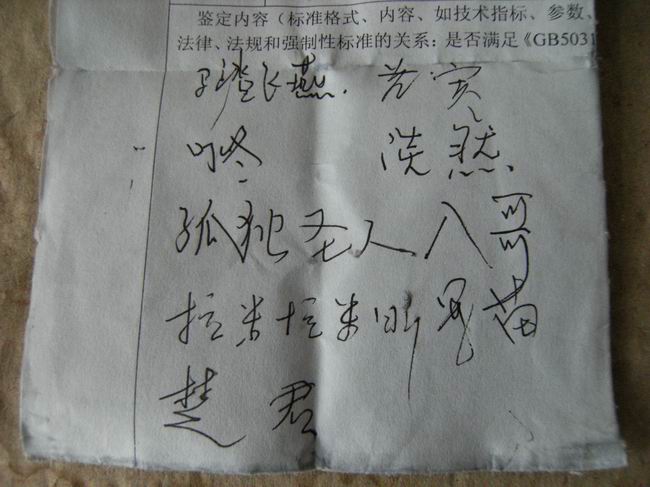 鉴定内容（标准格式、内容、如技术指标、参数、
法律、法规和强制性标准的关系：是否满足《GB5031
飞燕.
咚 淡然.
孤独圣人 八哥
拉米拉米 苗
楚君